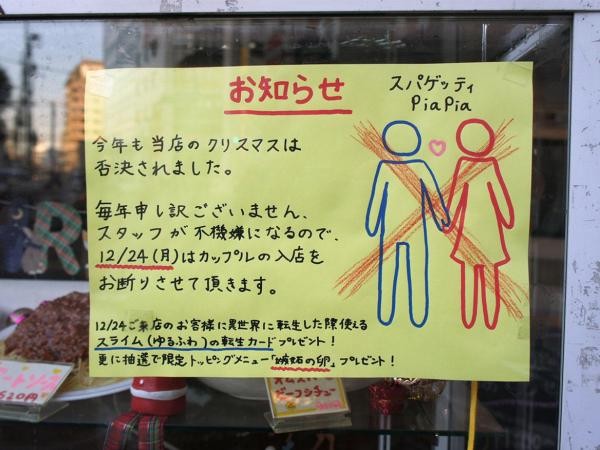 お知らせ
スパゲッティ
PiaPia
今年も当店のクリスマスは
否決されました。
毎年申し訳ございません、
スタッフが不機嫌になるので、
12/24(月)はカップルの入店を
お断りさせて頂きます。
12/24ご来店のお客様に異世界に転生した際使える
スライム(ゆるふわ)の転生カードプレゼント!
更に抽選で限定トッピングメニュー「嫉妬の卵」プレゼント!
520円